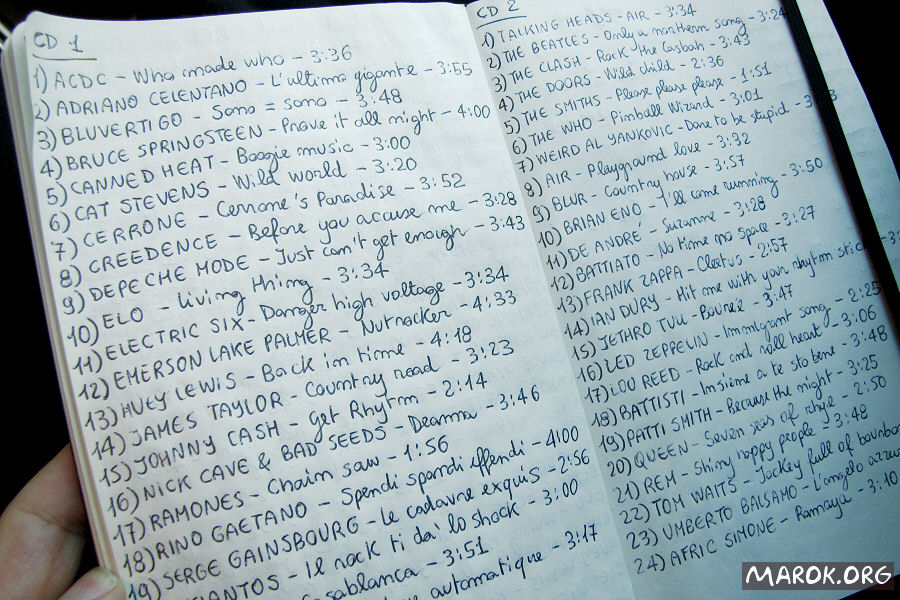 CD 1
1) ACDC - Who made who - 3:36
2) ADRIANO CELENTANO - L'ultimo gigante - 3:55
3) BLUVERTIGO - Sono = sono - 3:48
4) BRUCE SPRINGSTEEN - Prove it all night - 4:00
5) CANNED HEAT - Boogie music - 3:00
6) CAT STEVENS - Wild world - 3:20
7) CERRONE - Cerrone's Paradise - 3:52
8) CREEDENCE - Before you accuse me - 3:28
9) DEPECHE MODE - Just can't get enough - 3:43
10) ELO - living thing - 3:34
11) ELECTRIC SIX - Danger high voltage - 3:34
12) EMERSON LAKE PALMER - Nutracker - 4:33
13) HUEY LEWIS - Back in time - 4:18
14) JAMES TAYLOR - Country road - 3:23
15) JOHNNY CASH - Get Rhythm - 2:14
16) NICK CAVE & BAD SEEDS - Deanna - 3:46
17) RAMONES - Chain saw - 1:56
18) RINO GAETANO - Spendi spandi effendi - 4:00
19) SERGE GAINSBOURG - le cadavre exquis - 2:56
SANTOS - Il rock ti da' lo shock - 3:00
Casablanca - 3:51
automatique - 3:17
CD 2
1) TALKING HEADS - AIR - 3:34
2) THE BEATLES - Only a northern song - 3:24
3) THE CLASH - Rock the Casbah - 3:43
4) THE DOORS - Wild child - 2:36
5) THE SMITHS - Please please please - 1:51
6) THE WHO - Pinball Wizard - 3:01
7) WEIRD AL YANKOVIC - Dare to be stupid - 3
8) AIR - Playground love - 3:32
9) BLUR - Country house - 3:57
10) BRIAN ENO - I'll come running - 3:50
11) DE ANDRÉ - Suzanne - 3:28
12) BATTIATO - No time no space - 3:27
13) FRANK ZAPPA - Cleetus - 2:57
14) IAN DURY - Hit me with your rhythm stick
15) JETHRO TULL - Bourée - 3:47
16) LED ZEPPELIN - Immigrant song - 2:25
17) LOU REED - Rock and roll heart - 3:06
18) BATTISTI - Insieme a te sto bene - 3:48
19) PATTI SMITH - Because the night - 3:25
20) QUEEN - Seven seas of rhye - 2:50
21) REM - Shiny happy people - 3:48
22) TOM WAITS - Jockey full of bourbon
23) UMBERTO BALSAMO - L'angelo azzurro
24) AFRIC SIMONE - Ramaya - 3:10
MAROK.ORG